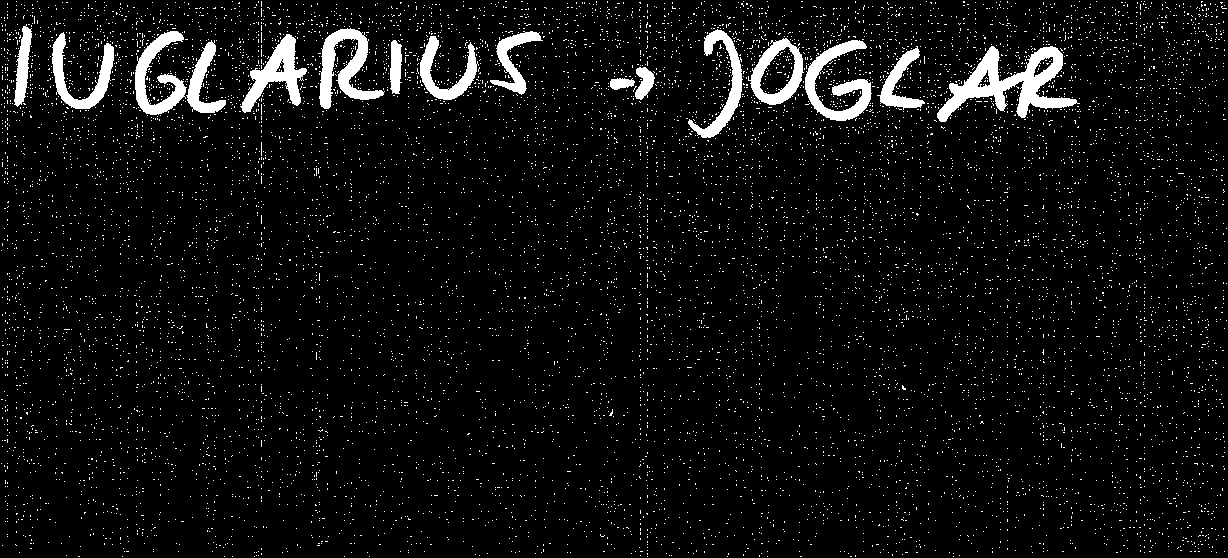 IUGLARIUS → JOGLAR